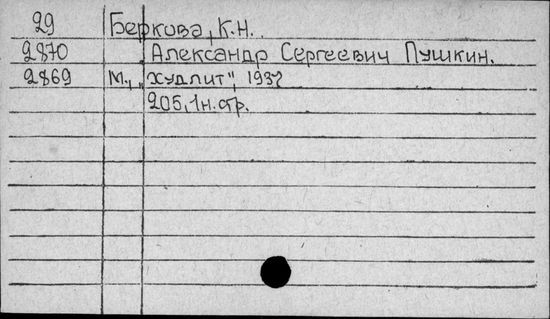 29 Беркова, К.Н.
2870 Александр Сергеевич Пушкин.
2869 М., „Худлит", 1937
205, 1н. стр.